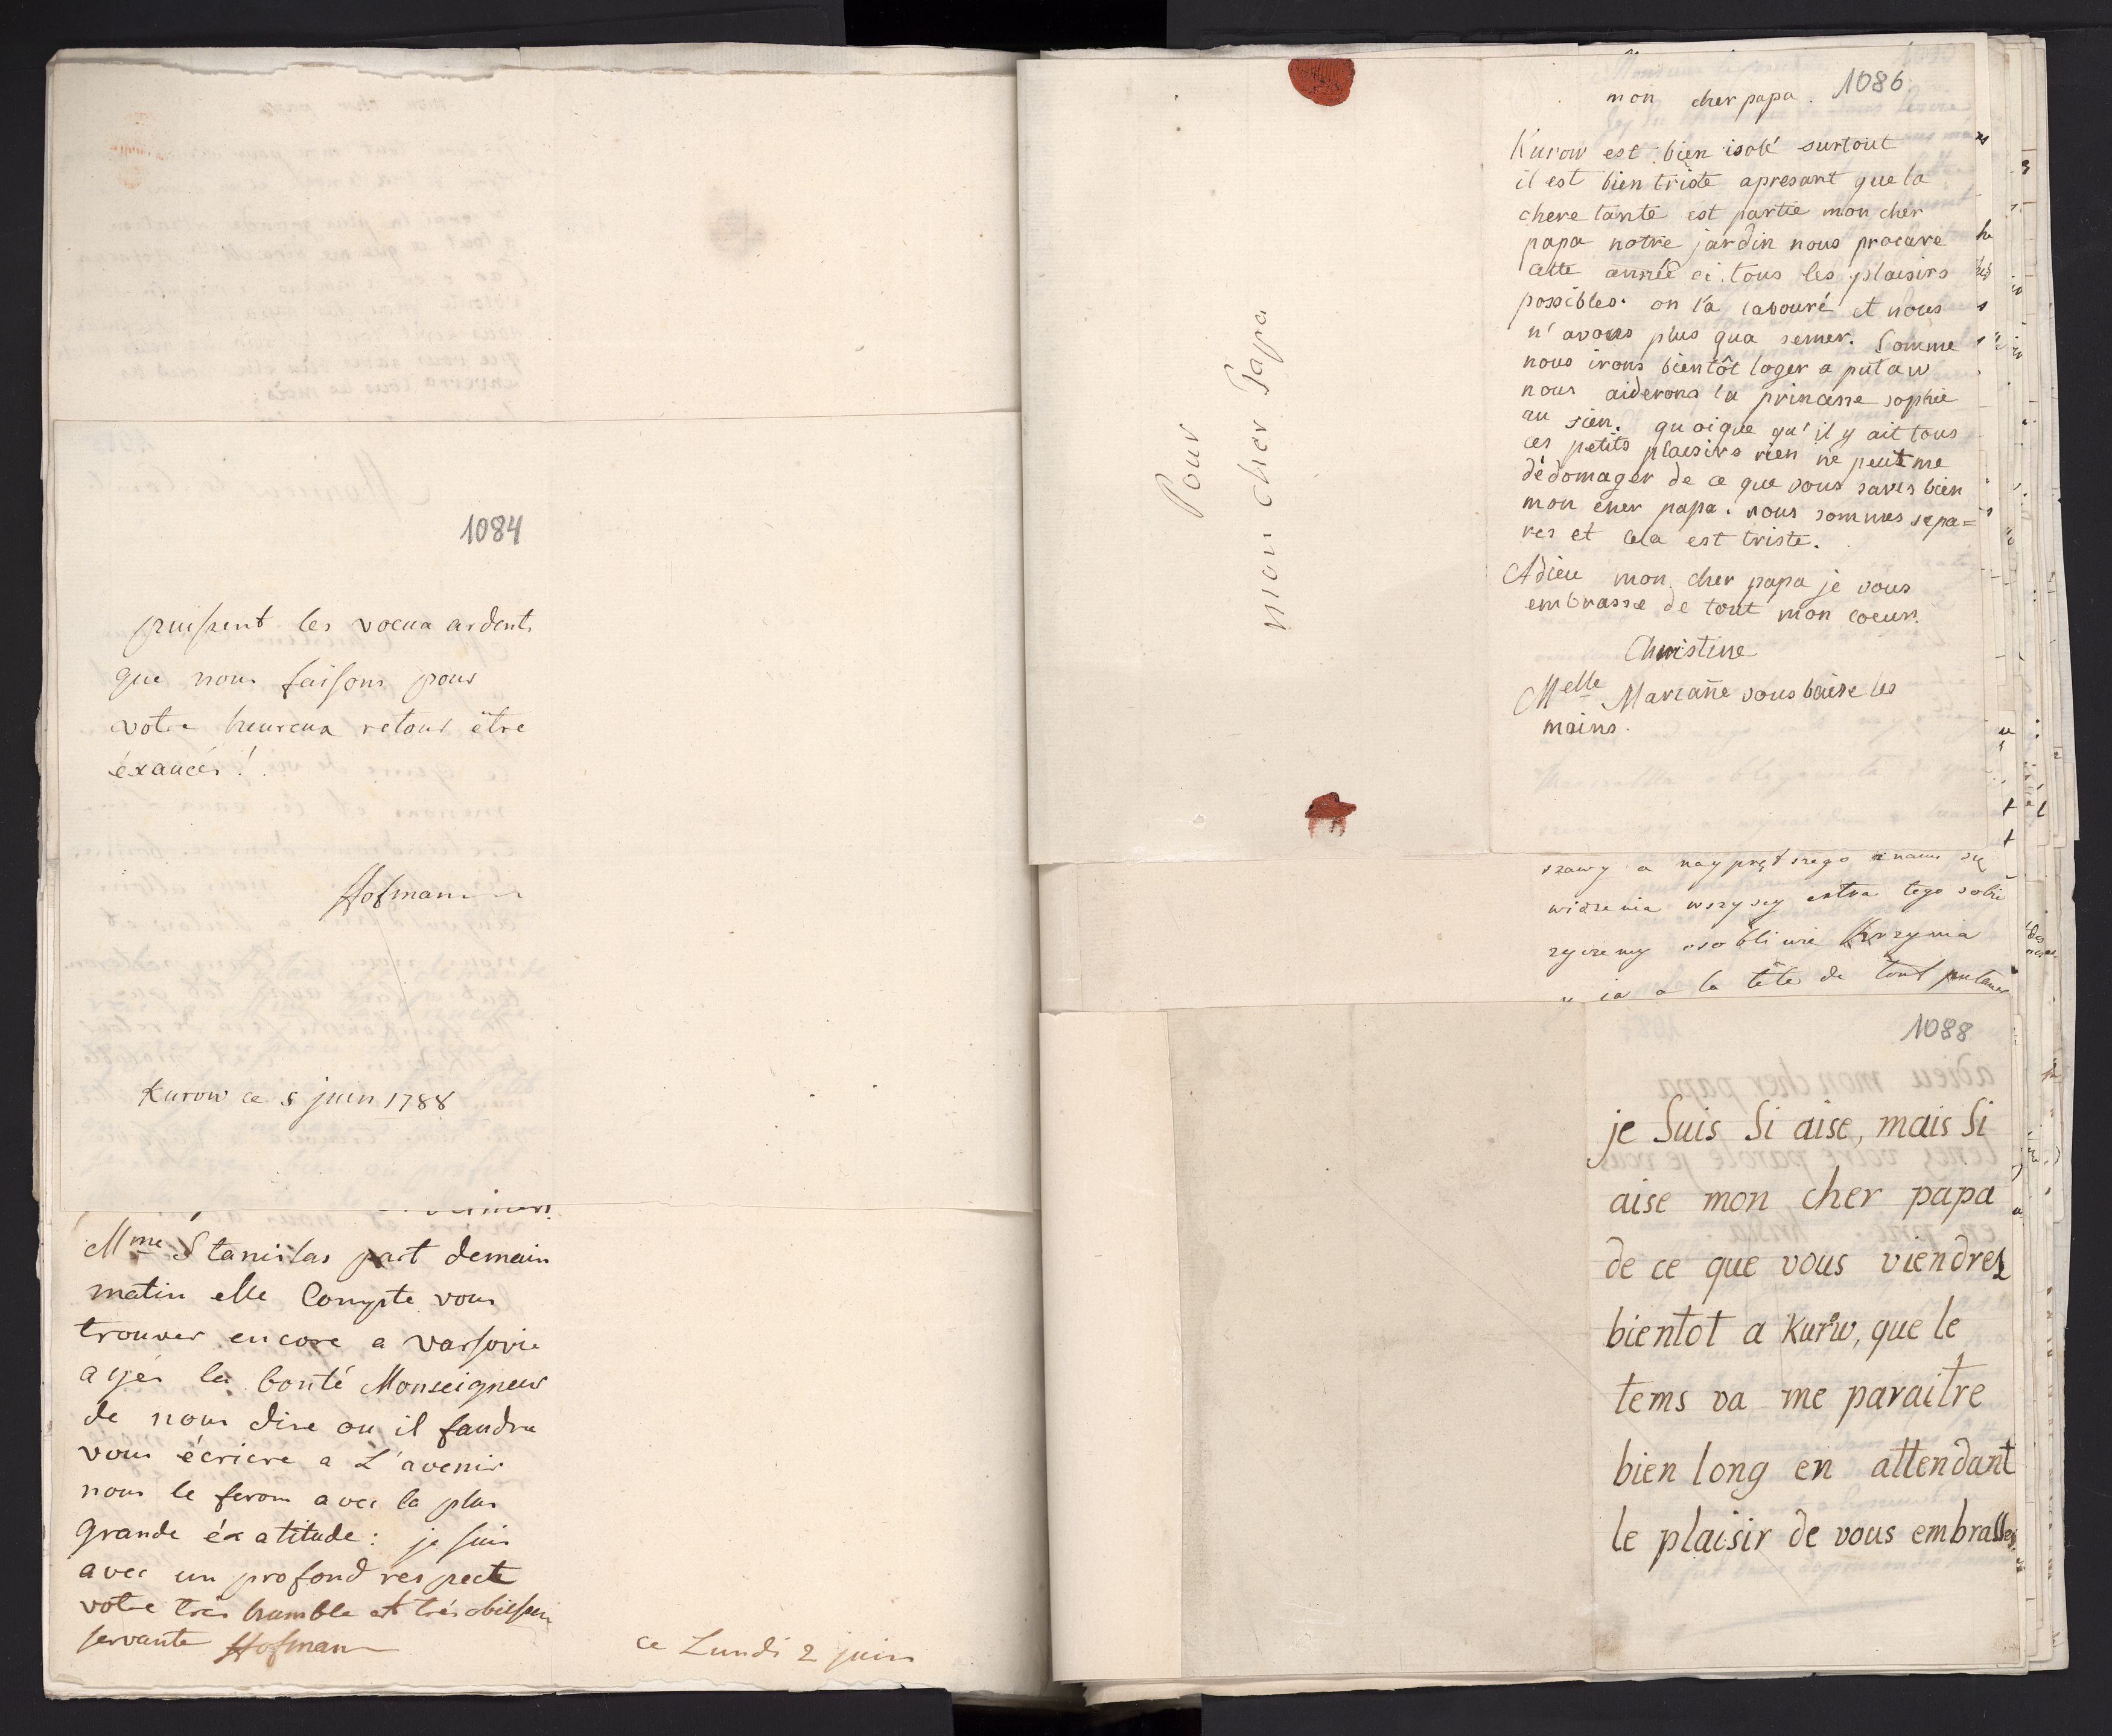 1084
puissent les voeux ardents
que nous faisons pour
votre heureux retour être
éxaucés!
Hofmann
Kurow ce 5 juin 1788
Mme Stanislas part demain
matin elle Compte vous
trouver encore a varsovie
ayés la bonté Monseigneur
de nous dire ou il faudra
vous écrire a L'avenir
nous le ferons avec la plus
grande éxatitude: je suis
avec un profond respect
votre très humble et trés obeissen
servante Hofmann
ce Lundi 2 juin
Pour
mon cher Papa
1086
mon cher papa.
Kurow est bien isolé surtout
il est bien triste apresant que la
chere tante est partie mon cher
papa notre jardin nous procure
cette année ci tous les plaisirs
possibles. on l'a labouré et nous
n'avons plus qua semer. Comme
nous irons bientôt loger a pulaw
nous aiderons la princesse sophie
au sien. quoique qu'il y ait tous
ces petits plaisirs rien ne peut me
dédomager de ce que vous savés bien
mon cher papa. nous sommes sepa=
res et cela est triste.
Adieu mon cher papa je vous
embrasse de tout mon coeur.
Christine
Melle Marianne vous baise les
mains.
szawy a nayprętszego z nami się
widzenia wszyscy extra tego sobie
zyczemy osobliwie Krzynia
a la tête de tout
1088
je Suis Si aise, mais Si
aise mon cher papa
de ce que vous viendrez
bientot a Kurow, que le
tems va me paraitre
bien long en attendant
le plaisir de vous embrasser